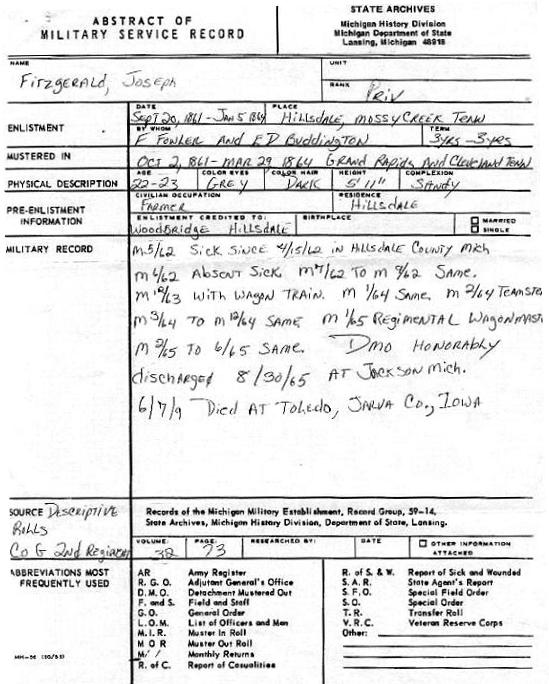 ABSTRACT OF
MILITARY SERVICE RECORD
STATE ARCHIVES
Michigan History Division
Michigan Department of State
Lansing, Michigan 48918
NAME
Fitzgerald, Joseph
UNIT
RANK
Priv
ENLISTMENT
DATE PLACE
Sept 20, 1861 - Jan 5 1864 Hillsdale, Mossy Creek Tenn
BY WHOM TERM
F Fowler and E D Buddington 3yrs - 3yrs
MUSTERED IN
Oct 2, 1861 - Mar 29 1864 Grand Rapids and Cleveland Tenn
PHYSICAL DESCRIPTION
AGE COLOR EYES COLOR HAIR HEIGHT COMPLEXION
22-23 Grey Dark 5' 11" Sandy
PRE-ENLISTMENT
INFORMATION
CIVILIAN OCCUPATION RESIDENCE
Farmer Hillsdale
ENLISTMENT CREDITED TO: BIRTHPLACE
Woodbridge Hillsdale
MARRIED
SINGLE
MILITARY RECORD
M 5/62 Sick since 4/15/62 in Hillsdale County Mich
M 6/62 Absent Sick. M 7/62 to M 9/62 Same.
M 12/63 with wagon train. M 1/64 Same, M 2/64 Teamster
M 3/64 to M 12/64 Same M 1/65 Regimental Wagonmast
M 2/65 to 6/65 Same. Dmo Honorably
discharged 8/30/65 at Jackson Mich.
6/7/9 Died at Toledo, Jarva Co., Iowa
SOURCE Descriptive
Rolls
Co G 2nd Regiment
Records of the Michigan Military Establishment, Record Group, 59-14,
State Archives, Michigan History Division, Department of State, Lansing.
VOLUME: PAGE: RESEARCHED BY: DATE
38 73
OTHER INFORMATION
ATTACHED
ABBREVIATIONS MOST
FREQUENTLY USED
AR Army Register
R. G. O. Adjutant General's Office
D. M. O. Detachment Mustered Out
F. and S. Field and Staff
G. O. General Order
L. O. M. List of Officers and Men
M. I. R. Muster In Roll
M O R Muster Out Roll
M/ / Monthly Returns
R. of C. Report of Casualities
R. of S. & W. Report of Sick and Wounded
S. A. R. State Agent's Report
S. F. O. Special Field Order
S. O. Special Order
T. R. Transfer Roll
V. R. C. Veteran Reserve Corps
Other: